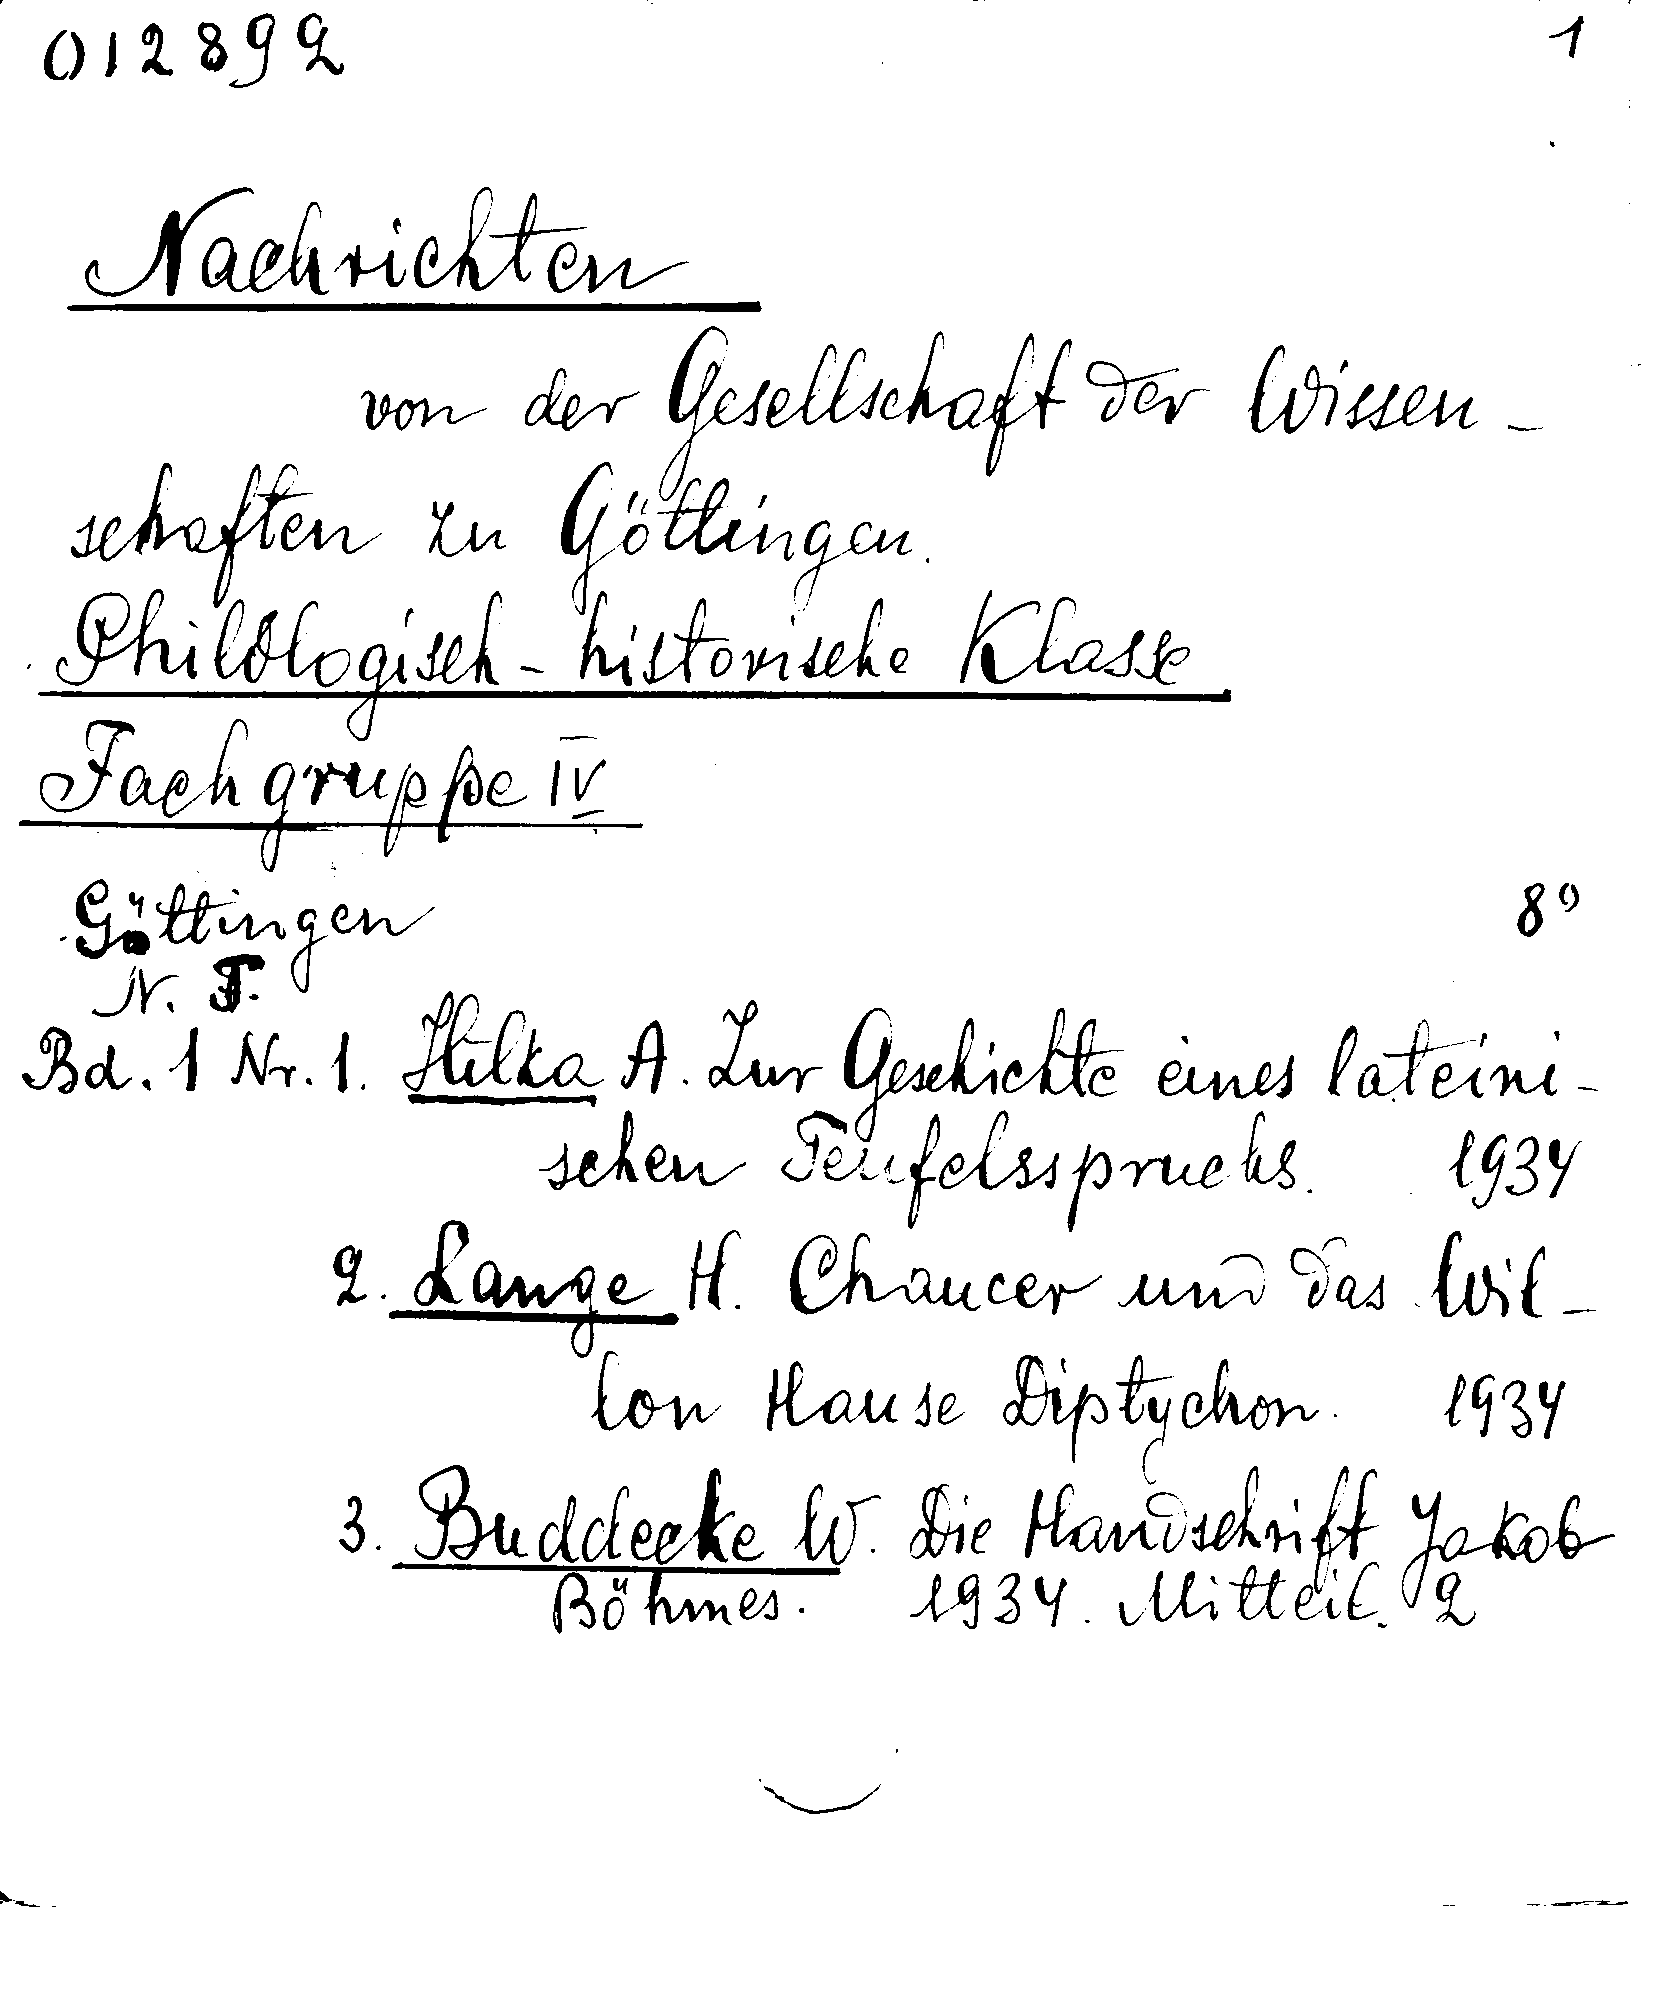 012892 1
Nachrichten
von der Gesellschaft der Wissen-
schaften zu Göttingen.
Philologisch-historische Klasse
Fachgruppe IV
Göttingen 8°
N. F.
Bd. 1 Nr. 1. Hilka A. Zur Geschichte eines lateini-
schen Teufelsspruchs. 1934
2. Lange H. Chaucer und das Wil-
ton Hause Diptychon. 1934
3. Buddecke W. Die Handschrift Jakob
Böhmes. 1934. Mitteil. 2